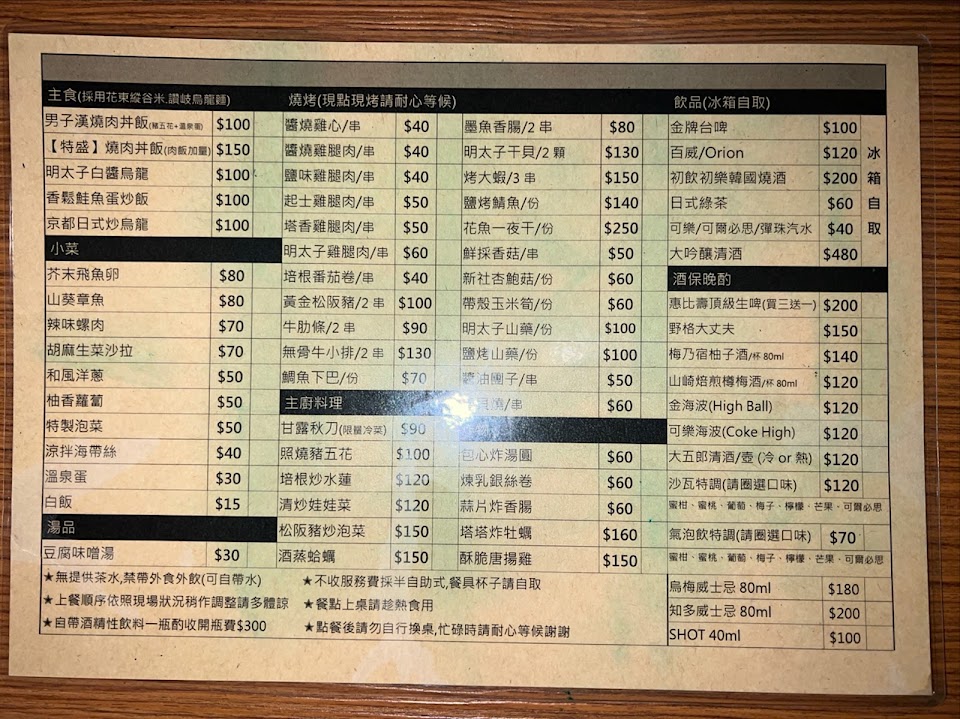 主食(採用花東縱谷米.讚岐烏龍麵)
男子漢燒肉丼飯(豬五花+溫泉蛋) $100
【特盛】燒肉丼飯(肉飯加量) $150
明太子白醬烏龍 $100
香鬆鮭魚蛋炒飯 $100
京都日式炒烏龍 $100
小菜
芥末飛魚卵 $80
山葵章魚 $80
辣味螺肉 $70
胡麻生菜沙拉 $70
和風洋蔥 $50
柚香蘿蔔 $50
特製泡菜 $50
涼拌海帶絲 $40
溫泉蛋 $30
白飯 $15
湯品
豆腐味噌湯 $30
燒烤(現點現烤請耐心等候)
醬燒雞心/串 $40
醬燒雞腿肉/串 $40
鹽味雞腿肉/串 $40
起士雞腿肉/串 $50
塔香雞腿肉/串 $50
明太子雞腿肉/串 $60
培根番茄卷/串 $40
黃金松阪豬/2 串 $100
牛肋條/2 串 $90
無骨牛小排/2 串 $130
鯛魚下巴/份 $70
主廚料理
甘露秋刀(限量冷菜) $90
照燒豬五花 $100
培根炒水蓮 $120
清炒娃娃菜 $120
松阪豬炒泡菜 $150
酒蒸蛤蠣 $150
墨魚香腸/2 串 $80
明太子干貝/2 顆 $130
烤大蝦/3 串 $150
鹽烤鯖魚/份 $140
花魚一夜干/份 $250
鮮採香菇/串 $50
新社杏鮑菇/份 $60
帶殼玉米筍/份 $60
明太子山藥/份 $100
鹽烤山藥/份 $100
醬油團子/串 $50
燒/串 $60
包心炸湯圓 $60
煉乳銀絲卷 $60
蒜片炸香腸 $60
塔塔炸牡蠣 $160
酥脆唐揚雞 $150
飲品(冰箱自取)
金牌台啤 $100
百威/Orion $120
初飲初樂韓國燒酒 $200
日式綠茶 $60
可樂/可爾必思/彈珠汽水 $40
大吟釀清酒 $480
冰箱自取
酒保晚酌
惠比壽頂級生啤(買三送一) $200
野格大丈夫 $150
梅乃宿柚子酒/杯 80ml $140
山崎焙煎樽梅酒/杯 80ml $120
金海波(High Ball) $120
可樂海波(Coke High) $120
大五郎清酒/壺 (冷 or 熱) $120
沙瓦特調(請圈選口味) $120
蜜柑、蜜桃、葡萄、梅子、檸檬、芒果、可爾必思
氣泡飲特調(請圈選口味) $70
蜜柑、蜜桃、葡萄、梅子、檸檬、芒果、可爾必思
烏梅威士忌 80ml $180
知多威士忌 80ml $200
SHOT 40ml $100
★無提供茶水,禁帶外食外飲(可自帶水)
★上餐順序依照現場狀況稍作調整請多體諒
★自帶酒精性飲料一瓶酌收開瓶費$300
★不收服務費採半自助式,餐具杯子請自取
★餐點上桌請趁熱食用
★點餐後請勿自行換桌,忙碌時請耐心等候謝謝